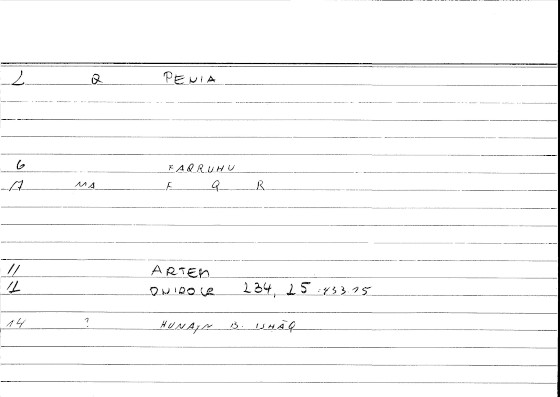 2 Q PENIA
6 FAQRUHU
17 MA F Q R
11 ARTEM
12 ONIROCR 234, 25
14 ? HUNAJN B. ISHĀQ